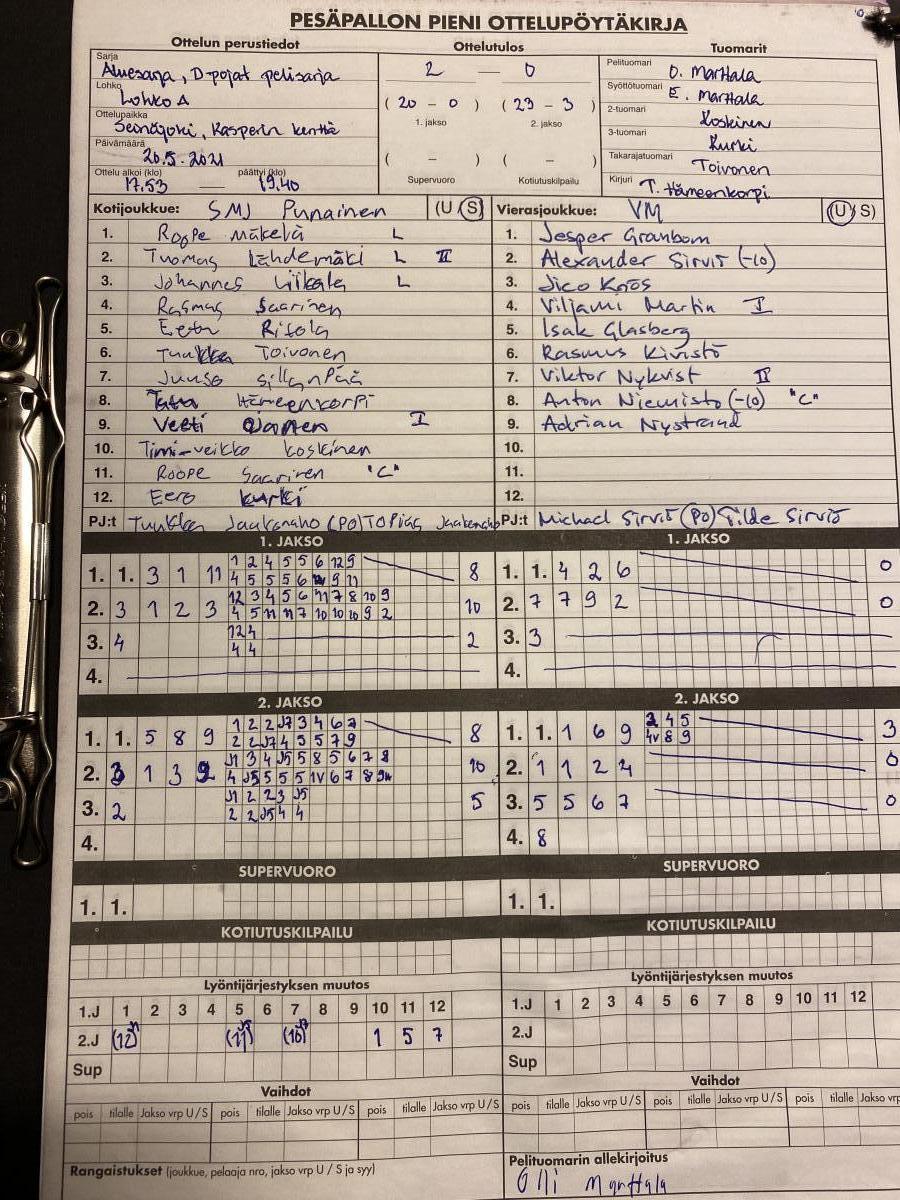 PESÄPALLON PIENI OTTELUPÖYTÄKIRJA
Ottelun perustiedot
Sarja
Aluesarja, D-pojat pelisarja
Lohko
Lohko A
Ottelupaikka
Seinäjoki, Kasperin kenttä
Päivämäärä
20.5.2021
Ottelu alkoi (klo) päättyi (klo)
17.53 — 19.40
Ottelutulos
2 — 0
(20 - 0) (23 - 3)
1. jakso 2. jakso
( - ) ( - )
Supervuoro Kotiutuskilpailu
Tuomarit
Pelituomari O. Marttala
Syöttötuomari E. Marttala
2-tuomari Koskinen
3-tuomari Kurki
Takarajatuomari Toivonen
Kirjuri T. Hämeenkorpi
Kotijoukkue: SMJ Punainen (U S)
1. Roope Mäkelä L
2. Tuomas Lähdemäki L II
3. Johannes Liikala L
4. Rasmus Saarinen
5. Eetu Ritola
6. Tuukka Toivonen
7. Juuso Sillanpää
8. Hämeenkorpi
9. Veeti I
10. Timi-Veikko Koskinen
11. Roope Saarinen "C"
12. Eero Kurki
PJ:t Tuukka Jaakonaho (PO) Topias Jaakonaho
Vierasjoukkue: VM (U S)
1. Jesper Granbom
2. Alexander Sirviö (-10)
3. Jico Knös
4. Viljami Martin I
5. Isak Glasberg
6. Rasmus Kivistö
7. Viktor Nykvist II
8. Anton Niemistö (-10) "C"
9. Adrian Nystrand
10.
11.
12.
PJ:t Michael Sirviö (PO) Tilde Sirviö
1. JAKSO
1. 1. 3 1 11 1 2 4 5 5 6 12 9 8
4 5 5 5 6 9 11
2. 3 1 2 3 12 3 4 5 6 11 7 8 10 9 10
4 5 11 11 7 10 10 10 9 2
3. 4 12 4 2
4 4
4.
1. JAKSO
1. 1. 4 2 6 0
2. 7 7 9 2 0
3. 3
4.
2. JAKSO
1. 1. 5 8 9 1 2 2 J7 3 4 6 7 8
2 2 J7 4 5 5 7 9
2. 3 1 3 2 J1 3 4 J5 5 8 5 6 7 8 10
4 J5 5 5 5 1V 6 7 8
3. 2 J1 2 2 3 J5 5
2 2 J5 4 4
4.
2. JAKSO
1. 1. 1 6 9 2 4 5 3
4V 8 9
2. 1 1 2 4 0
3. 5 5 6 7 0
4. 8
SUPERVUORO
1. 1.
SUPERVUORO
1. 1.
KOTIUTUSKILPAILU
KOTIUTUSKILPAILU
Lyöntijärjestyksen muutos
1.J 1 2 3 4 5 6 7 8 9 10 11 12
2.J (12) (11) (10) 1 5 7
Sup
Lyöntijärjestyksen muutos
1.J 1 2 3 4 5 6 7 8 9 10 11 12
2.J
Sup
Vaihdot
pois tilalle Jakso vrp U/S pois tilalle Jakso vrp U/S pois tilalle Jakso vrp U/S
Vaihdot
pois tilalle Jakso vrp U/S pois tilalle Jakso vrp U/S pois tilalle Jakso vrp
Rangaistukset (joukkue, pelaaja nro, jakso vrp U / S ja syy)
Pelituomarin allekirjoitus
Olli Marttala